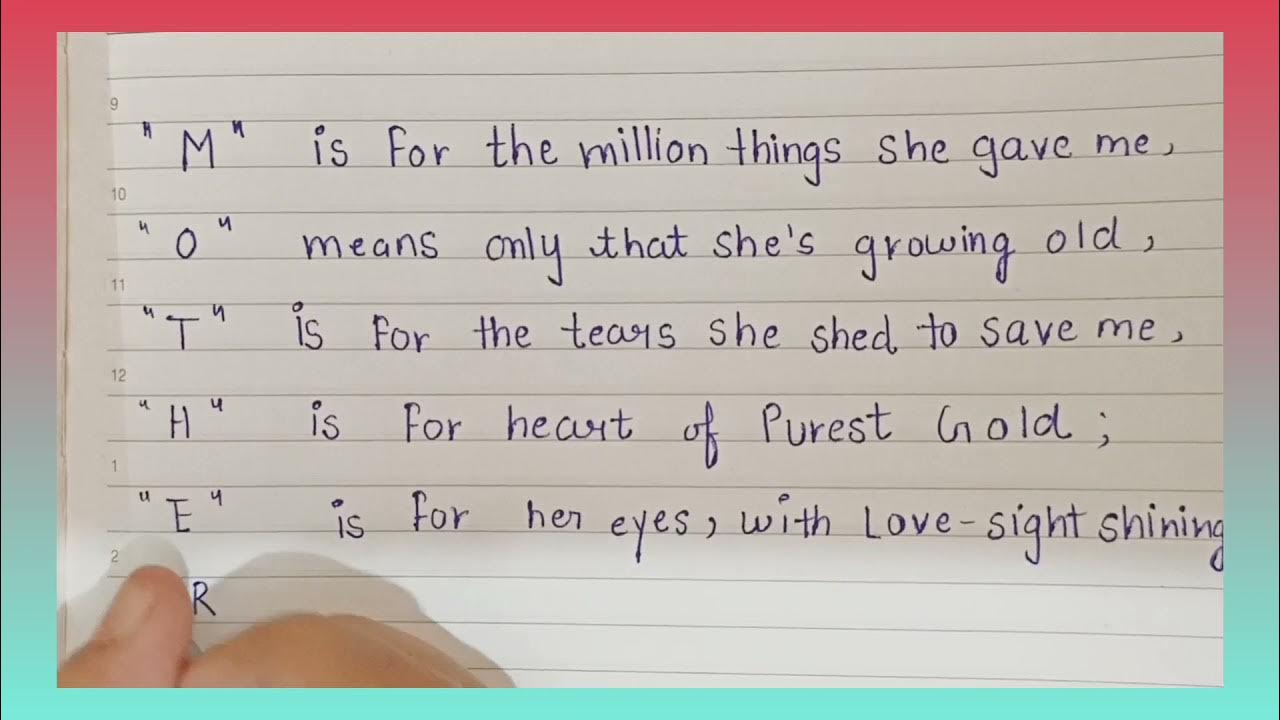 9
"M" is for the million things she gave me,
10
"O" means only that she's growing old,
11
"T" is for the tears she shed to save me,
12
"H" is for heart of Purest Gold;
1
"E" is for her eyes, with Love-sight shining
2
R